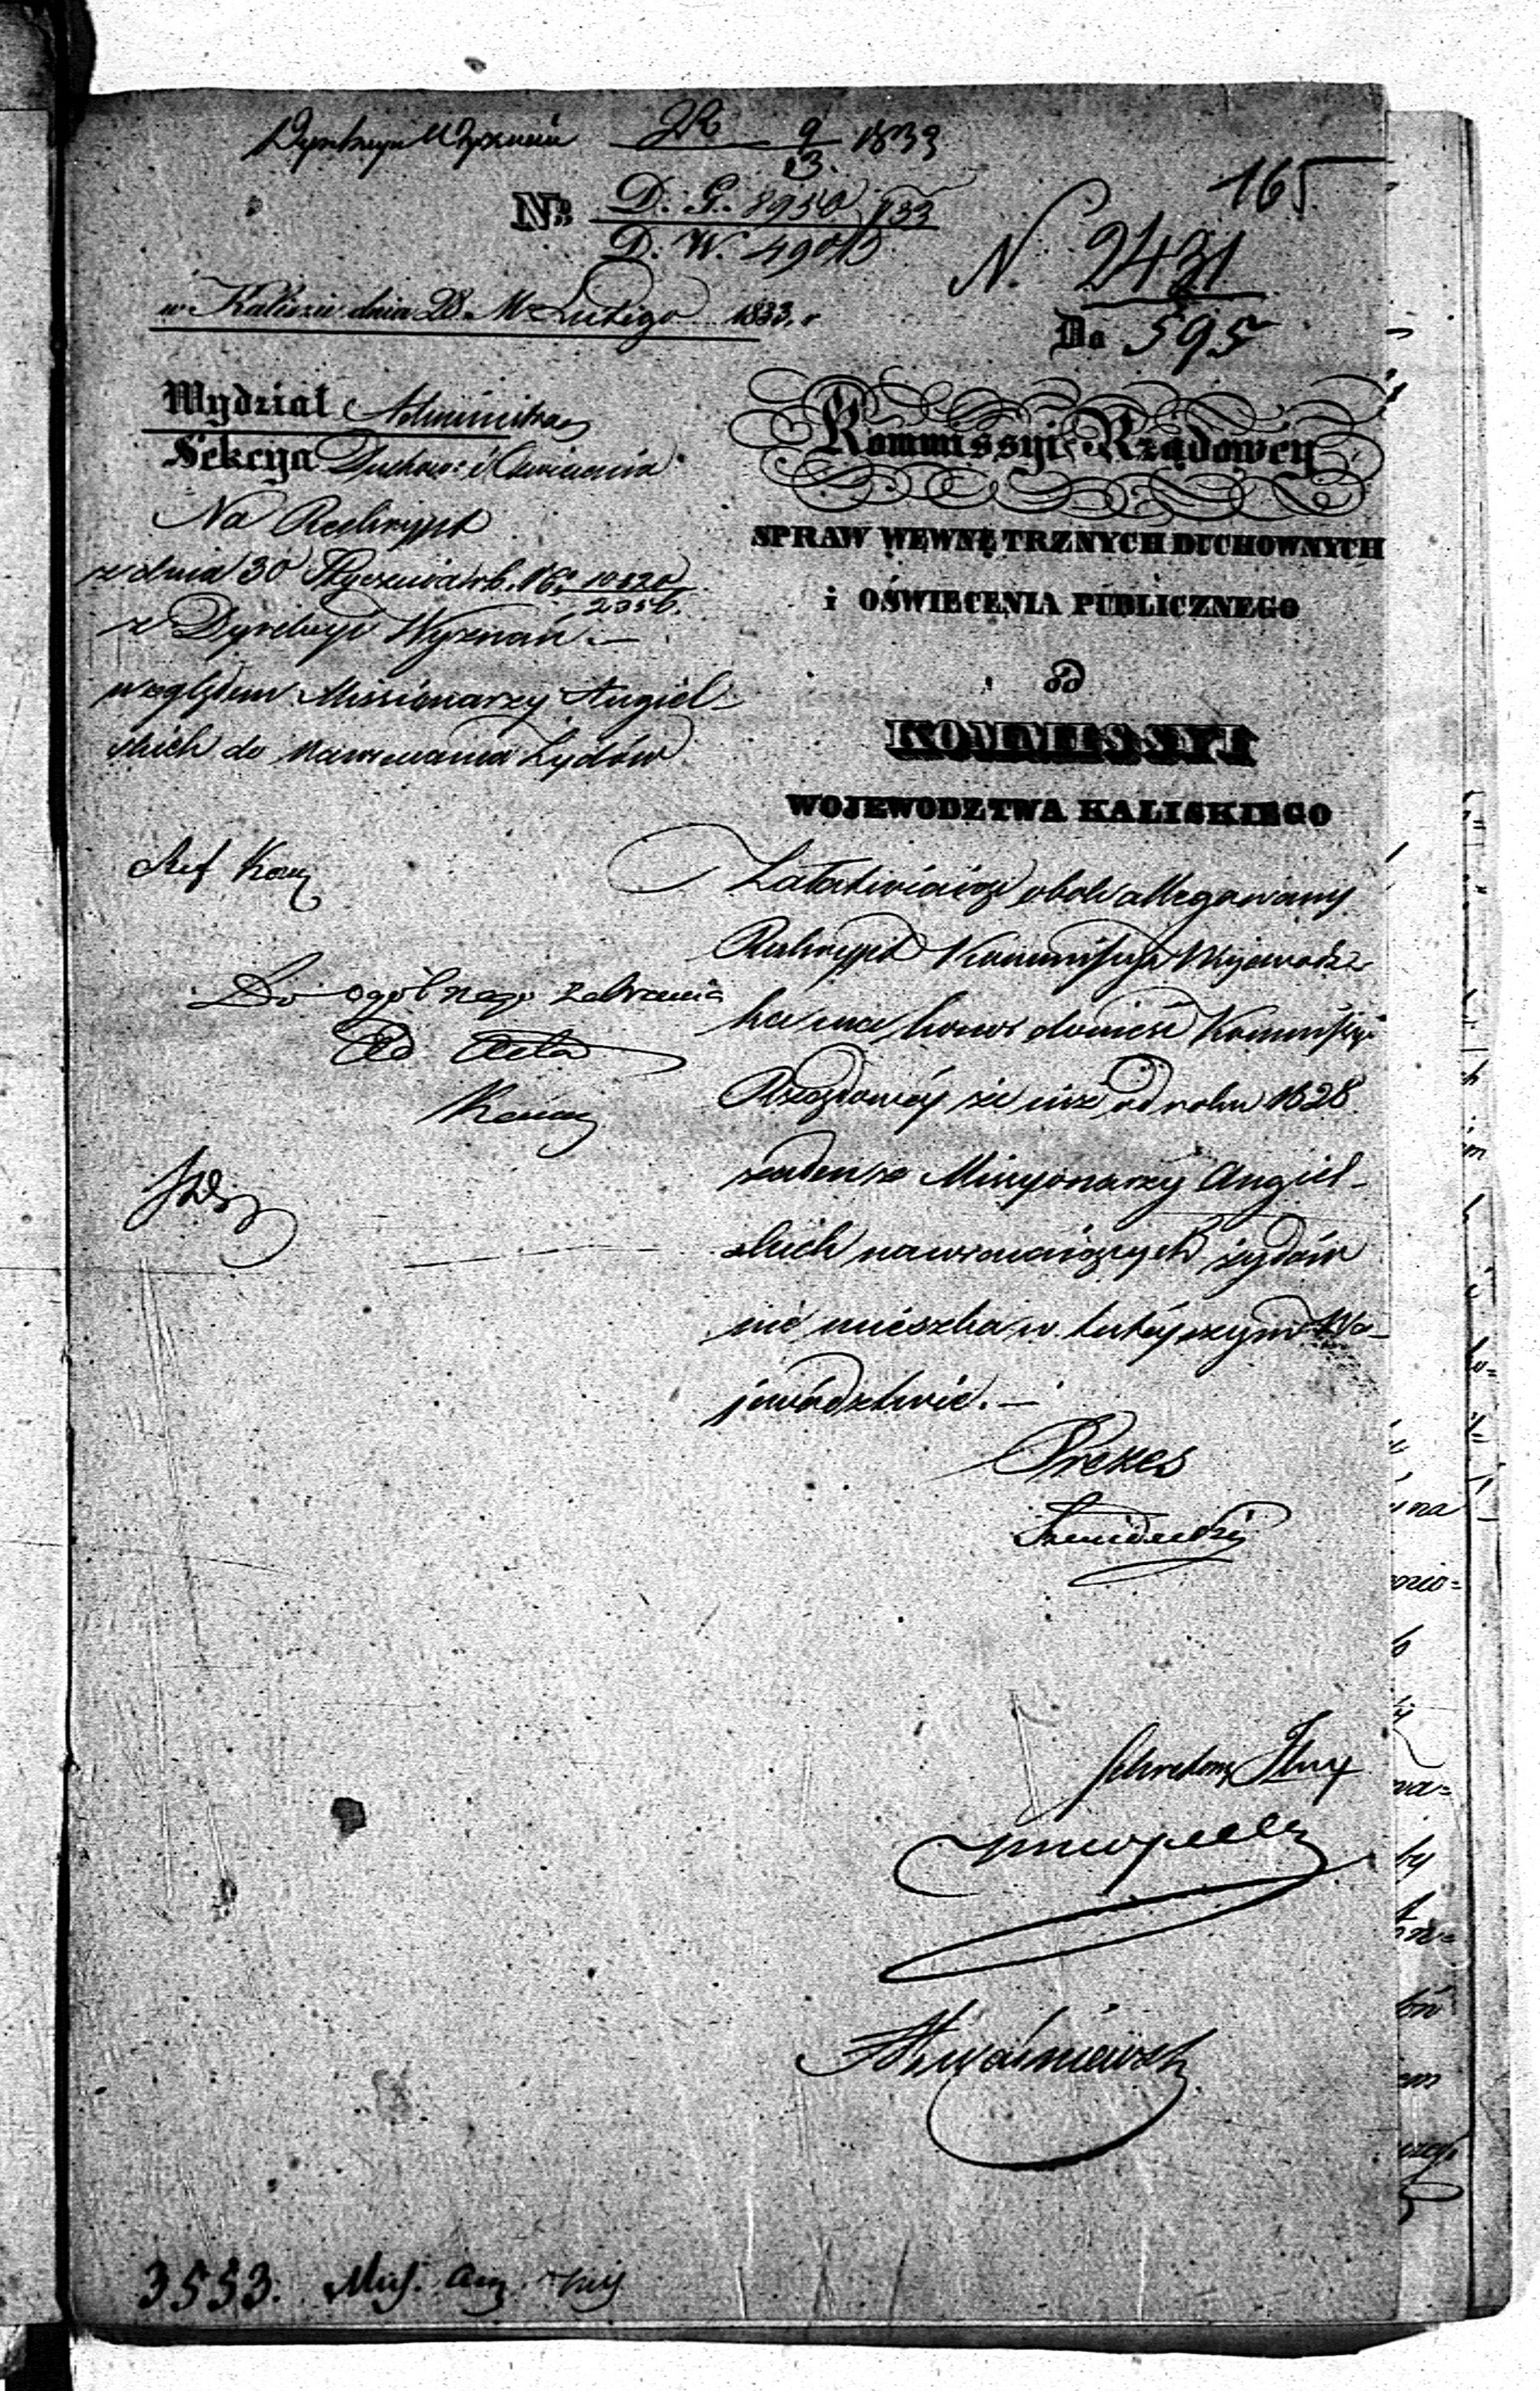 Dyrekcya Wyznań 9/3 1833
165
No D. G. 8950 833
D. W. 4901
N. 2431
w Kaliszu dnia 28 M Lutego 1833. r
Do 595
Wydział Administracy
Sekcya Duchow: i Oswiecenia
Na Reskrypt
z dnia 30 Stycznia rb. No 10820
z Dyrekcyi Wyznań.—
względem Missionarzy Angiel-
skich do nawracania Żydów
Kommissyi Rządowéy
SPRAW WEWNĘTRZNYCH DUCHOWNYCH
i OŚWIECENIA PUBLICZNEGO
od
KOMMISSYI
WOJEWODZTWA KALISKIEGO
Załatwiaiąc obok allegowany
Reskrypt Kommissya Wojewódz
ka ma honor donieść Kommissyi
Rządowéy że iuż od roku 1828
żaden ze Missyonarzy Angiel-
skich nawracaiących żydów
nie mieszka w tutéyszym Wo-
jewództwie.—
Do ogólnego zebrania
Ad Acta
Prezes
Sekretarz Jlny
3553. Miss. Ang.